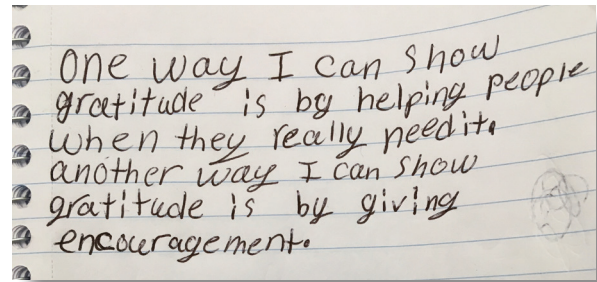 One way I can show
gratitude is by helping people
when they really need it.
another way I can show
gratitude is by giving
encouragement.